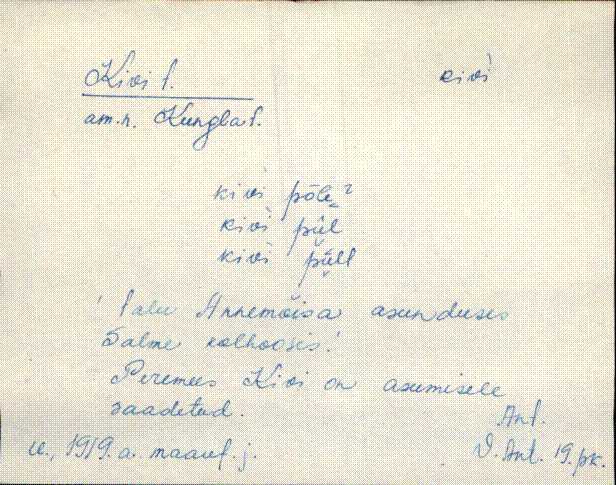 Kivi t. kivì
am.n. Kungla t.
kivì põlɛ̬ʔ
kivì pi̮l
kivì pi̮ll
! talu Annemõisa asunduses
Salme kolhoosis!
Peremees Kivi on asumisele
saadetud.
Ant.
u., 1919.a. maaref. j. V. Ant. 19. pk.